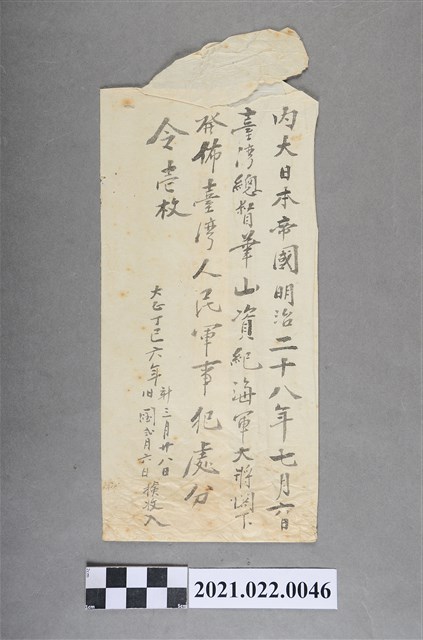 內大日本帝國明治二十八年七月六日
臺灣總督華山資紀海軍大將閣下
發佈臺灣人民軍事犯處分
令壱枚
大正丁巳六年
新三月廿八日
旧閏弍月六日
検收入
2021.022.0046